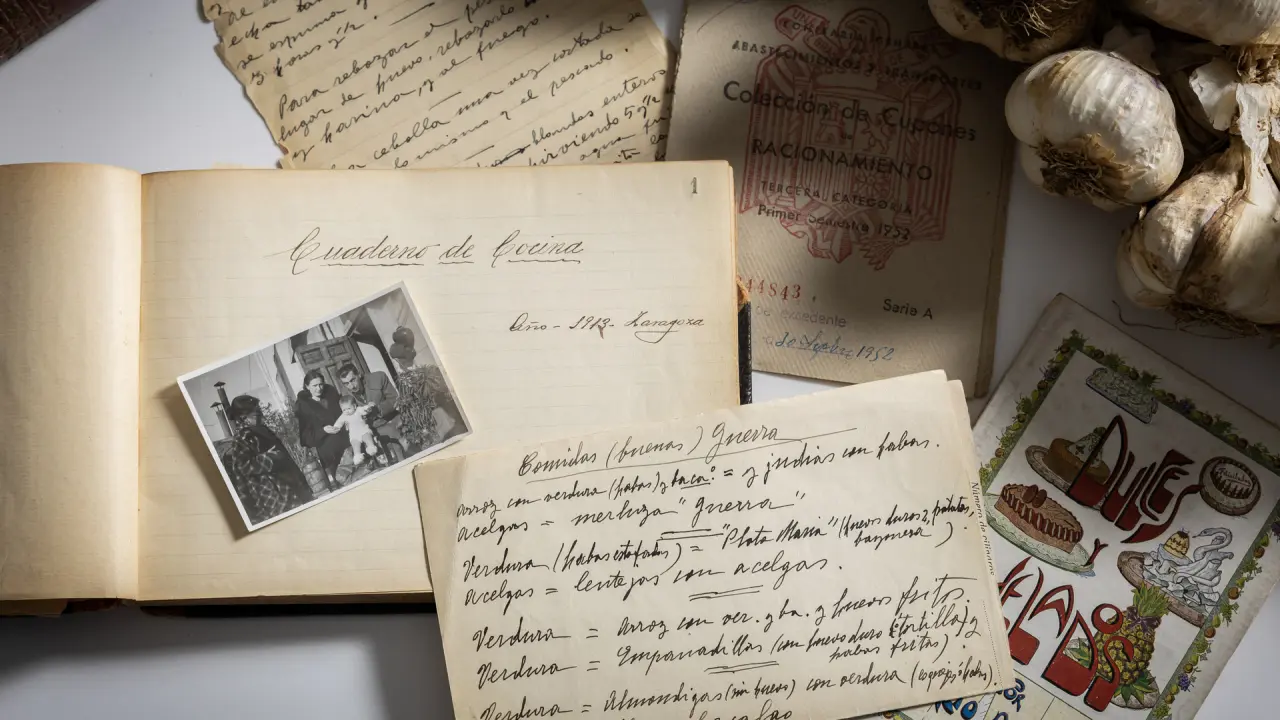 se espuma
y
Para rebozar el pes
lugar de huevo, rebozarlo
y harina, y al fuego.
la cebolla una vez cortada
lo mismo q el pescado.
blandas enteros
hirviendo 5 m
agua
COMISARIA GENERAL
ABASTECIMIENTOS Y TRANSPORTES
Colección de Cupones
RACIONAMIENTO
TERCERA CATEGORIA
Primer Semestre 1952
44843
Serie A
1952
1
Cuaderno de Cocina
Año - 1913 - Zaragoza
Comidas (buenas) Guerra
arroz con verdura (habas) y baca.º = y judias con habas.
acelgas = merluza "Guerra"
Verdura (habas estofadas) = "Plato Maria" (huevos duros 2, patatas,
bayonesa)
acelgas = lentejas con acelgas.
Verdura = arroz con ver. y ba. y huevos fritos.
Verdura = Empanadillas (con huevo duro (tortilla) y
habas fritas).
Verdura = Almondigas (sin huevo) con verdura
DULCES
HELADOS